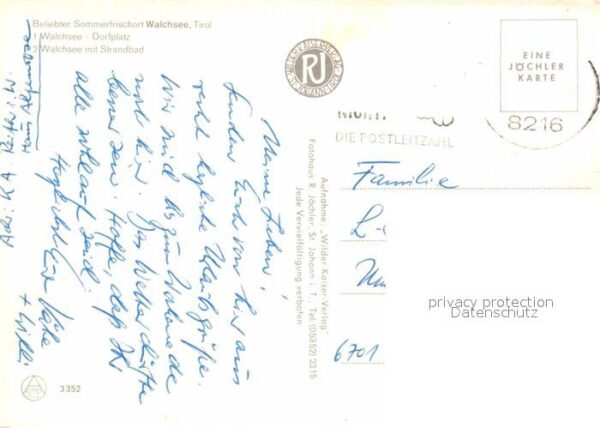 Beliebter Sommerfrischort Walchsee, Tirol
1 Walchsee - Dorfplatz
2 Walchsee mit Strandbad
Meine Lieben!
Senden Euch von hier aus
recht herzliche Urlaubsgrüße.
Wir sind bis zum Wochenende
noch hier. Das Wetter dürfte
besser sein. Hoffe, daß Ihr
alle wohlauf seid.
Herzlichst Eure Käthe
+ Willi
RJ
EINE
JÖCHLER
KARTE
DIE POSTLEITZAHL
8216
Aufnahme: „Wilder-Kaiser-Verlag"
Fotohaus R. Jöchler, St. Johann i. T., Tel. (05352) 2315
Jede Vervielfältigung verboten
Familie
6701
privacy protection
Datenschutz
3352